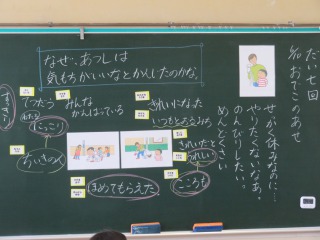 だい七回
5/10 おでこのあせ
せっかく休みなのに…
やりたくないなあ。
のんびりしたい。
めんどくさい
なぜ、あつしは
気もちがいいなとかんじたのかな。
てつだう
みんな
がんばっている
きれいになった
いつもとおるみち
にっこり
ちいきの人
きれいだと
うれしい
ほめてもらえた
こころも
すっきり